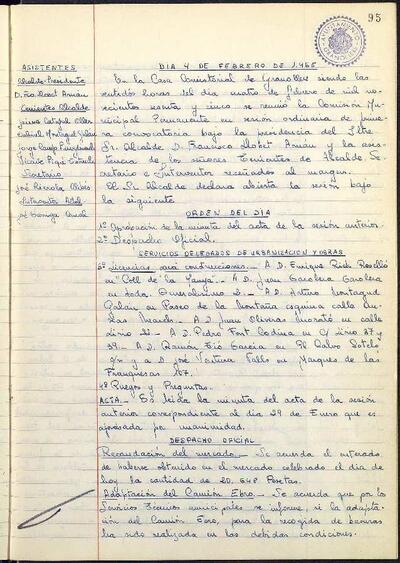 95
DIA 4 DE FEBRERO DE 1.965
ASISTENTES
Alcalde-Presidente
D. Fco Llobet Arnán
Tenientes Alcalde
Secretario
En la Casa Consistorial de Granollers siendo las
veintidós horas del día cuatro de Febrero de mil no-
vecientos sesenta y cinco se reunió la Comisión Mu-
nicipal Permanente en sesión ordinaria de prime-
ra convocatoria bajo la presidencia del Iltre.
Sr. Alcalde D. Francisco Llobet Arnán y la asis-
tencia de los señores Tenientes de Alcalde, Se-
cretario e Interventor reseñados al margen.
El Sr. Alcalde declara abierta la sesión bajo
la siguiente
ORDEN DEL DIA
1º Aprobación de la minuta del acta de la sesión anterior.
2º Despacho Oficial.
SERVICIOS DELEGADOS DE URBANIZACION Y OBRAS
3º Licencias para construcciones.- A D. Enrique Riek Roselló
en "Coll de la Manya".- A D. Juan Garolera Garolera
en Avda. Generalísimo 2.- A D. Arturo Montagud
Catalán en Paseo de la Montaña esquina calle
Ricardo. A D. Juan Oliveras Morató en calle
Lirio 22.- A D. Pedro Font Codina en C/ Lirio 37 y
39.- A D. Ramón Fió García en Pl. Calvo Sotelo
s/n y a D. José Ventura Valls en Marqués de las
Franquesas 107.
4º Ruegos y Preguntas.
ACTA.- Es leída la minuta del acta de la sesión
anterior correspondiente al día 29 de Enero que es
aprobada por unanimidad.
DESPACHO OFICIAL
Recaudación del mercado.- Se acuerda el enterado
de haberse obtenido en el mercado celebrado el día de
hoy la cantidad de 20.648 Pesetas.
Adaptación del Camión Ebro.- Se acuerda que por los
Servicios Técnicos municipales se informe, si la adapta-
ción del Camión Ebro, para la recogida de basuras
ha sido realizada en las debidas condiciones.